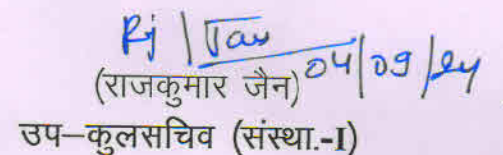 04/09/24
(राजकुमार जैन)
उप–कुलसचिव (संस्था.-I)